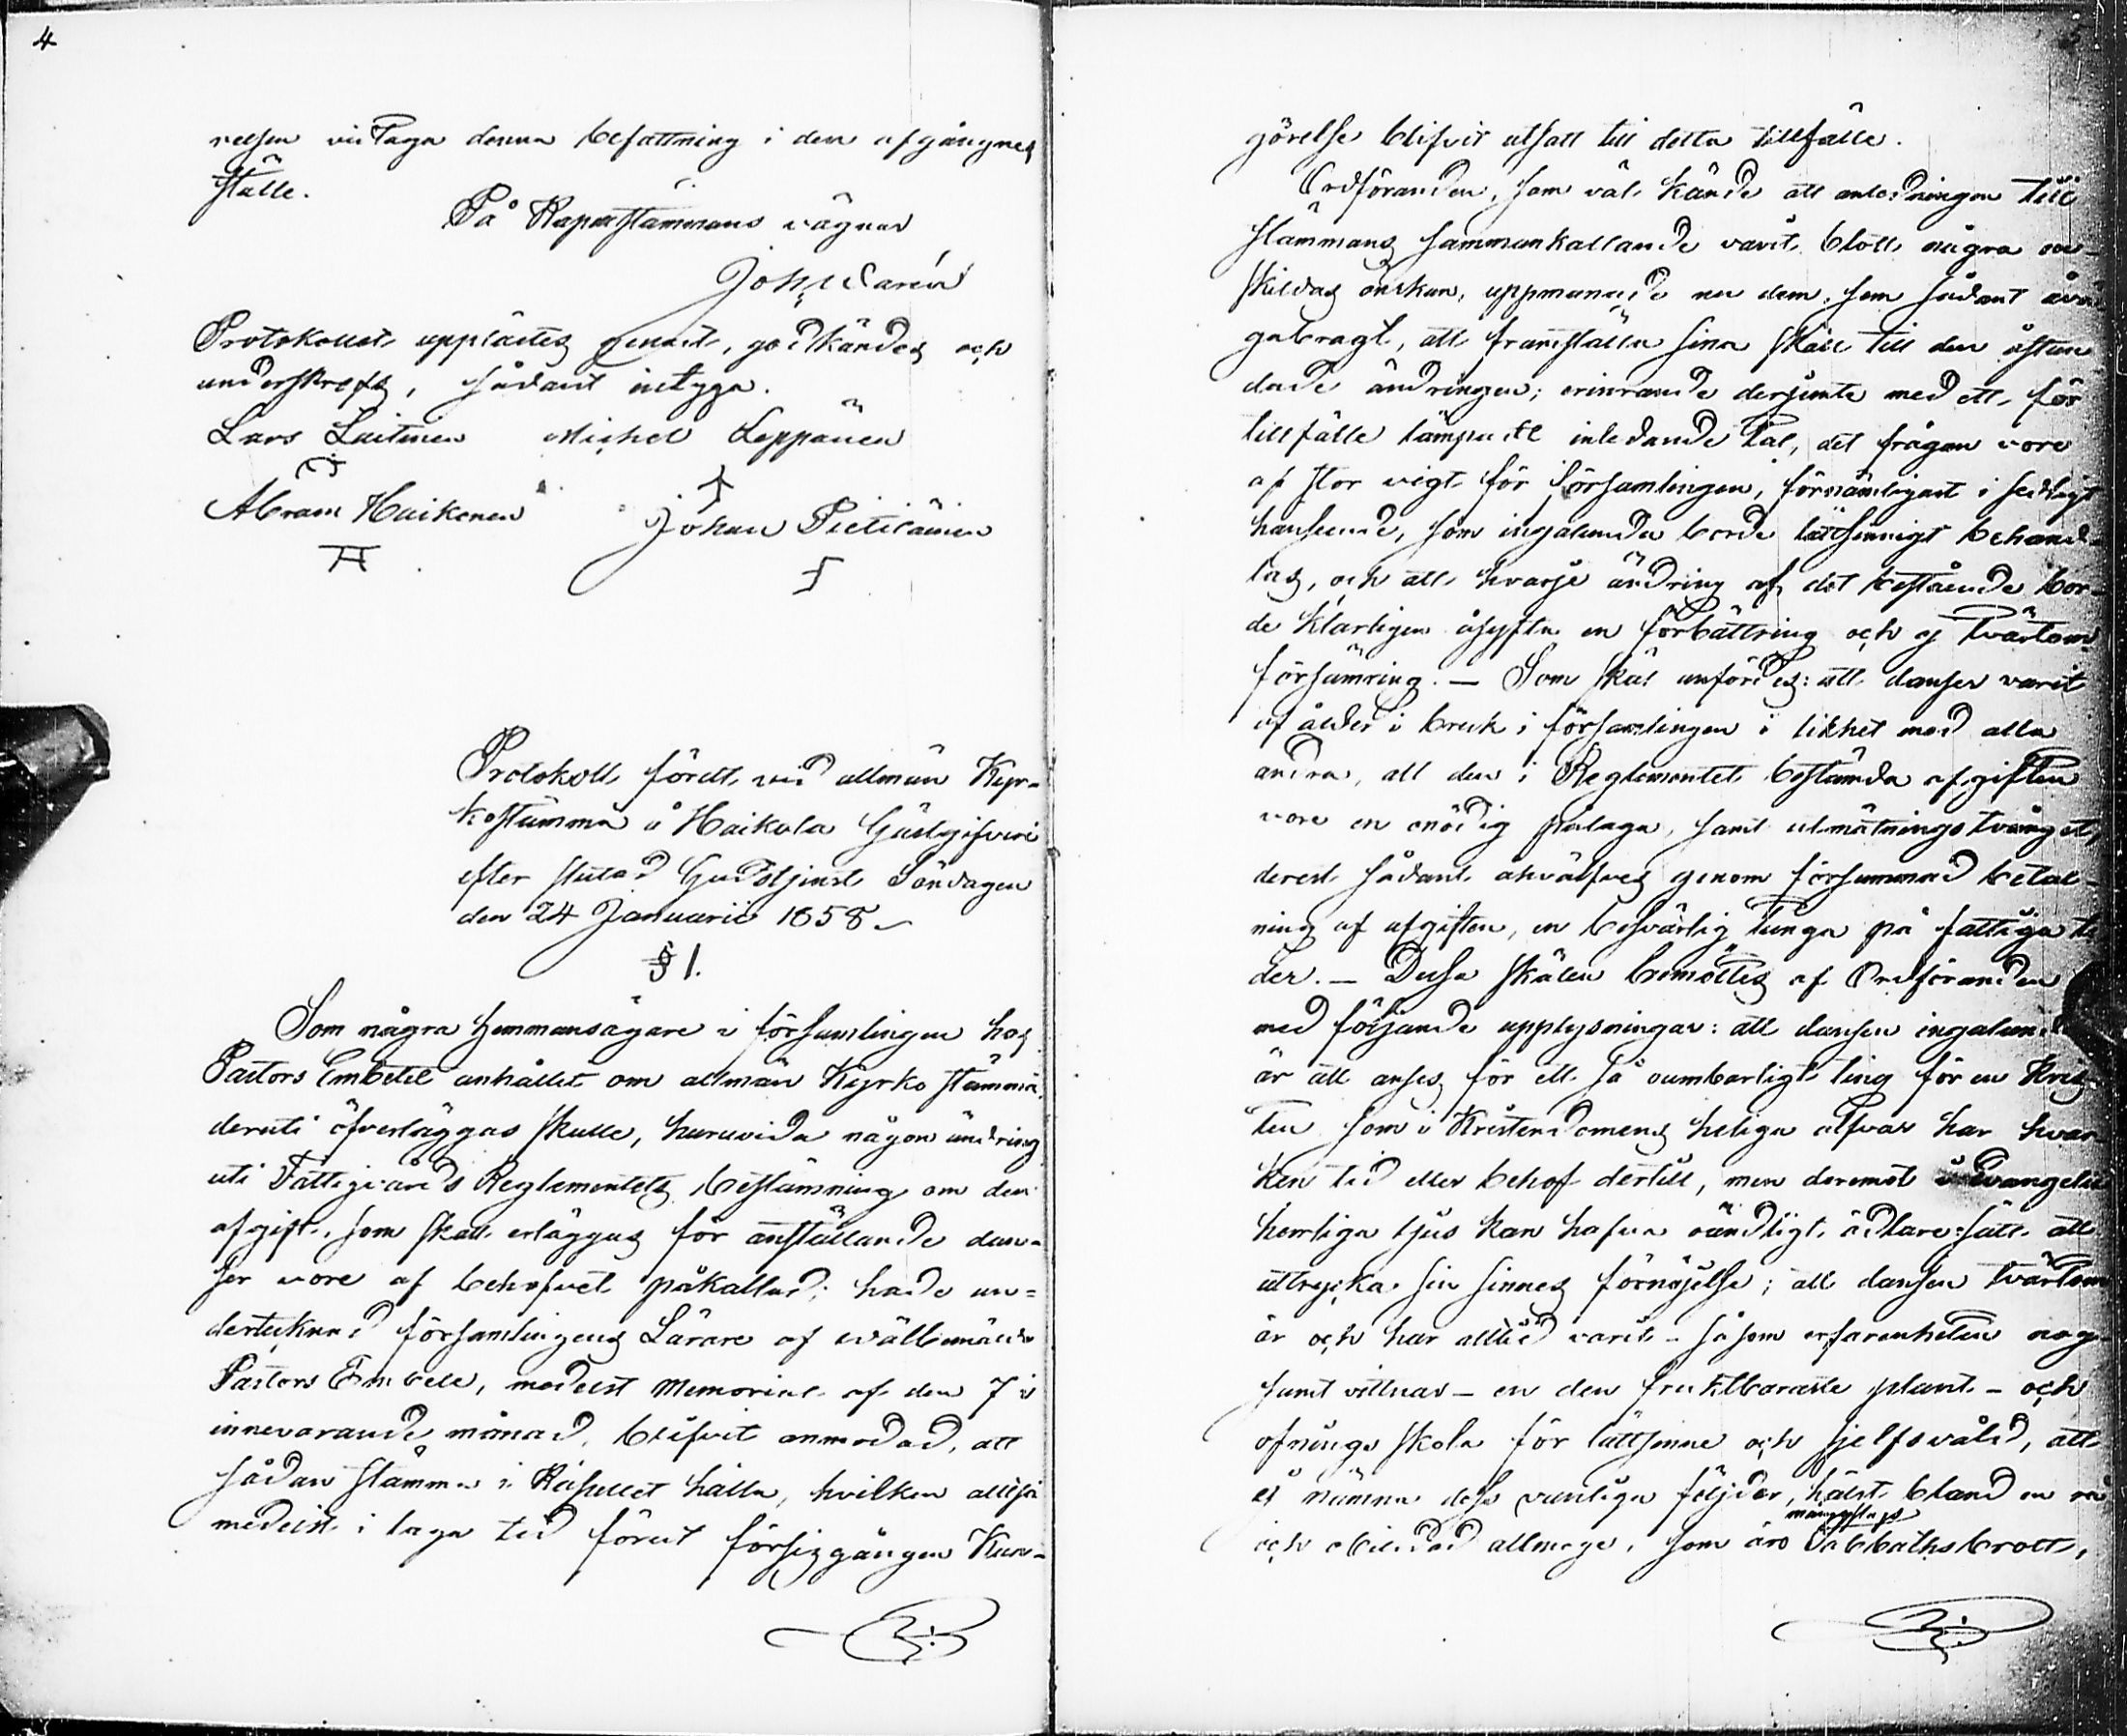 4
relsen vidtaga denna befattning i den afgångnes
ställe.
På Kapellstämmans vägnar
Joh.
Protokollet upplästes genast, godkändes och
underskrefs, sådant intyga.
Lars Laitinen Michel Leppänen
Abram Haikonen Johan Pietiläinen
Protokoll fördt vid allmän Kyr-
kostämma å Haikola Gästgifveri
efter slutad Gudstjenst Söndagen
den 24 Januarii 1858.
§ 1.
Som några hemmansägare i församlingen hos
Pastors Embetet anhållit om allmän Kyrkostämma,
deruti öfverläggas skulle, huruvida någon ändring
uti Fattigvårds Reglementets bestämning om den
afgift, som skall erläggas för anställande dan-
ser vore af behofvet påkallad; hade un-
dertecknad församlingens Lärare af välbemälde
Pastors Embete, medelst Memorial af den 7 i
innevarande månad, blifvit anmodad, att
sådan stämma i Kapellet hålla, hvilken alltså
medelst i laga tid förut försiggången Kun-
görelse blifvit utsatt till detta tillfälle.
Ordföranden, som väl kände att anledningen till
stämmans sammankallande varit blott några en-
skildas önskan, uppmanade nu dem, som sådant åvä-
gabragt, att framställa sina skäl till den åstun-
dade ändringen; erinrande derjemte med ett, för
tillfället lämpadt inledande tal, det frågan vore
af stor vigt för församlingen, förnämligast i sedligt
hänseende, som ingalunda borde lättsinnigt behand-
las, och att hvarje ändring af det bestående bor-
de klarligen åsyfta en förbättring och ej tvärtom
försämring. — Som skäl anfördes: att danser varit
af ålder i bruk i församlingen i likhet med alla
andra, att den i Reglementet bestämda afgiften
vore en onödig pålaga, samt utmätningstvånget,
derest sådant åhvälfves genom försummad betal-
ning af afgiften, en besvärlig tunga på fattiga ti-
der. — Dessa skälen bemöttes af Ordföranden
med följande upplysningar: att dansen ingalunda
är att anses för ett så oumbärligt ting för en Kris-
ten som i Kristendomens heliga allvar har hvar-
ken tid eller behof dertill, men deremot i Evangelii
herrliga ljus kan hafva oändligt ädlare sätt att
uttrycka sin sinnes förnöjelse; att dansen tvärtom
är och har alltid varit – såsom erfarenheten nog-
samt vittnar – en den fruktbaraste plant- och
öfnings skola för lättsinne och sjelfsvåld, att
ej nämna dess vanliga följder, hälst bland en rå
och obildad allmoge, som äro mångfaldigt Sabbathsbrott,